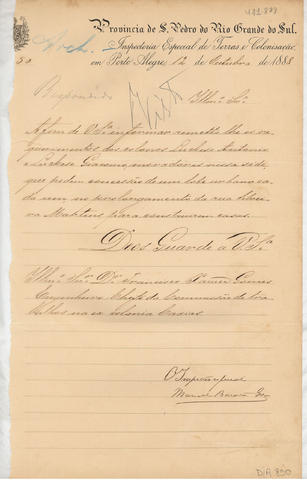 Provincia de S. Pedro do Rio Grande do Sul.
Inspectoria Especial de Terras e Colonisação
em Porto Alegre, 12 de Outubro de 1888
Respondido
Illmo Snr.
Afim de V.Sª informar remetto lhe os re
querimentos dos colonos Luchese Antonio
e Luchese Giacomo, moradores nessa sede,
que pedem concessão de um lote urbano ca
da um no prolongamento da rua
para construirem casas.
Deos Guarde a V. Sª
Illmo Snr Dr Francisco Xavier Gomes
Engenheiro Chefe da Commissão de tra
balhos na ex colonia Caxias
O Inspector geral
Manoel
D/A 890